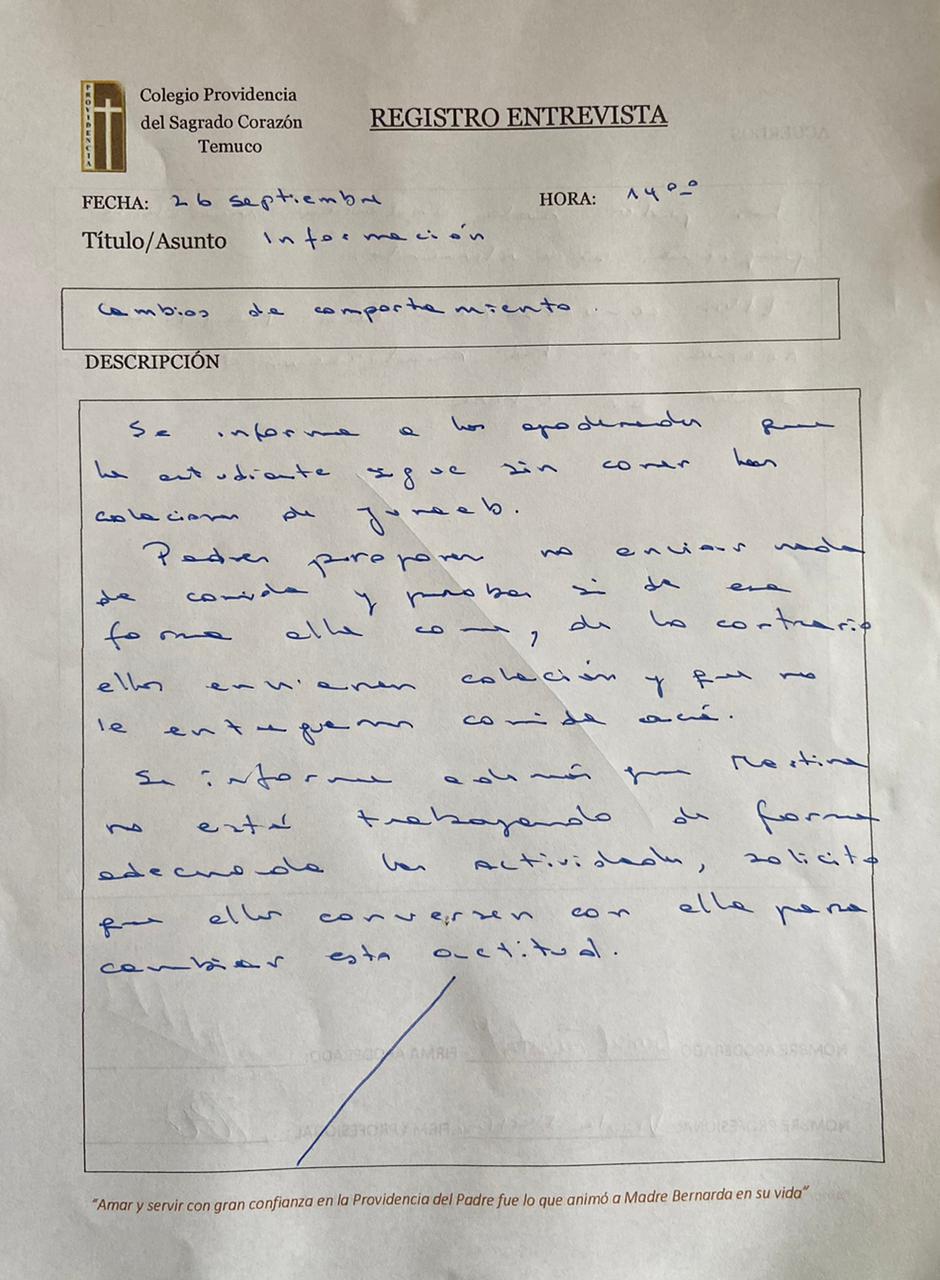 PROVIDENCIA
Colegio Providencia
del Sagrado Corazón
Temuco
REGISTRO ENTREVISTA
FECHA: 26 septiembre
HORA: 14:00
Título/Asunto Información
Cambios de comportamiento.
DESCRIPCIÓN
Se informa a los apoderados que
la estudiante sigue sin comer las
colaciones de Junaeb.
Padres proponen no enviar nada
de comida y probar si de esa
forma ella come, de lo contrario
ellos enviaran colación y que no
le entreguemos comida acá.
Se informa además que Martina
no está trabajando de forma
adecuada las actividades, solicito
que ellos conversen con ella para
cambiar esta actitud.
NOMBRE APODERADO
FIRMA APODERADO
NOMBRE PROFESIONAL
FIRMA PROFESIONAL
“Amar y servir con gran confianza en la Providencia del Padre fue lo que animó a Madre Bernarda en su vida”